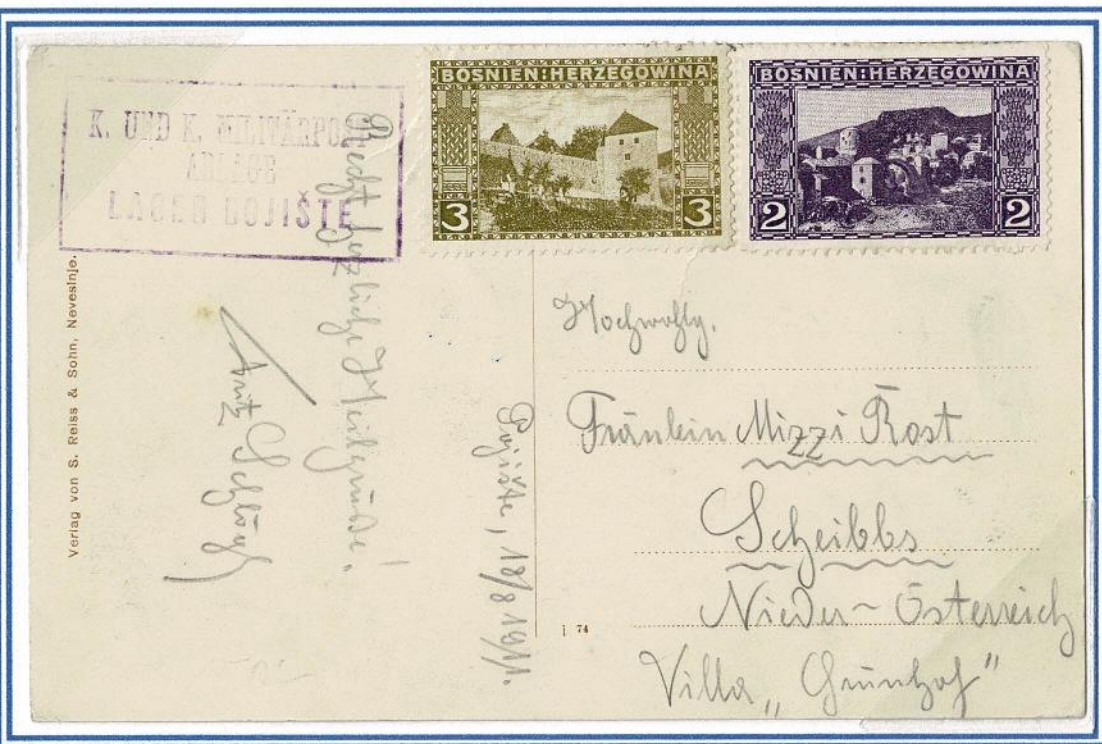 K. UND K. MILITÄRPOST
ABLAGE
LAGER BOJIŠTE
BOSNIEN:HERZEGOWINA
3 3
BOSNIEN:HERZEGOWINA
2 2
Verlag von S. Reiss & Sohn, Nevesinje.
Recht herzliche Heilgrüße!
Fritz
Bojište, 18/8 1911.
i 74
Hochwohlg.
Fräulein Mizzi Rost
Scheibbs
Nieder-Österreich
Villa „Grünhof"